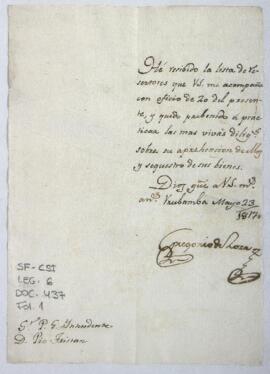 Hé recibido la lista de De-
sertores que VS. me acompaña
con oficio de 20 del presen-
te, y quedo prebenido á prac-
ticar las mas vivas dilig.s
sobre su aprehencion de
y sequestro de sus bienes.
Dios gũe á VS. m.s
an.s Urubamba Mayo 23
1817.
Gregorio de
SF-CSI
LEG. 6
DOC. 437
Fol. 1
S.or G. Yntendente
D. Pio Tristan